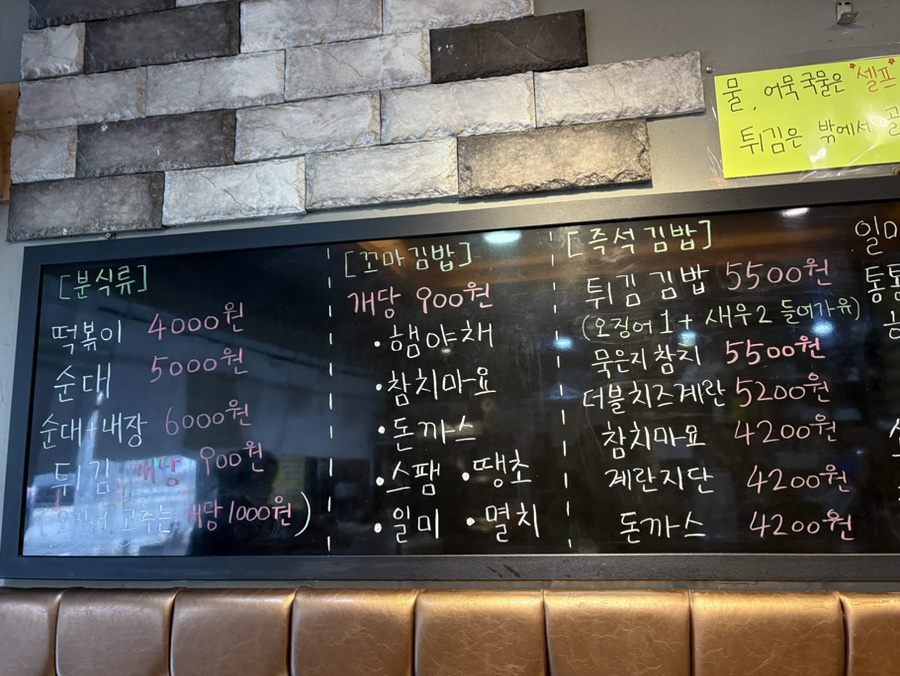 물, 어묵국물은 "셀프"
튀김은 밖에서
[분식류]
떡볶이 4000원
순대 5000원
순대+내장 6000원
튀김 개당 900원
고추는 개당 1000원)
[꼬마김밥]
개당 900원
·햄야채
·참치마요
·돈까스
·스팸 ·땡초
·일미 ·멸치
[즉석김밥]
튀김김밥 5500원
(오징어1+새우2 들어가유)
묵은지참치 5500원
더블치즈계란 5200원
참치마요 4200원
계란지단 4200원
돈까스 4200원